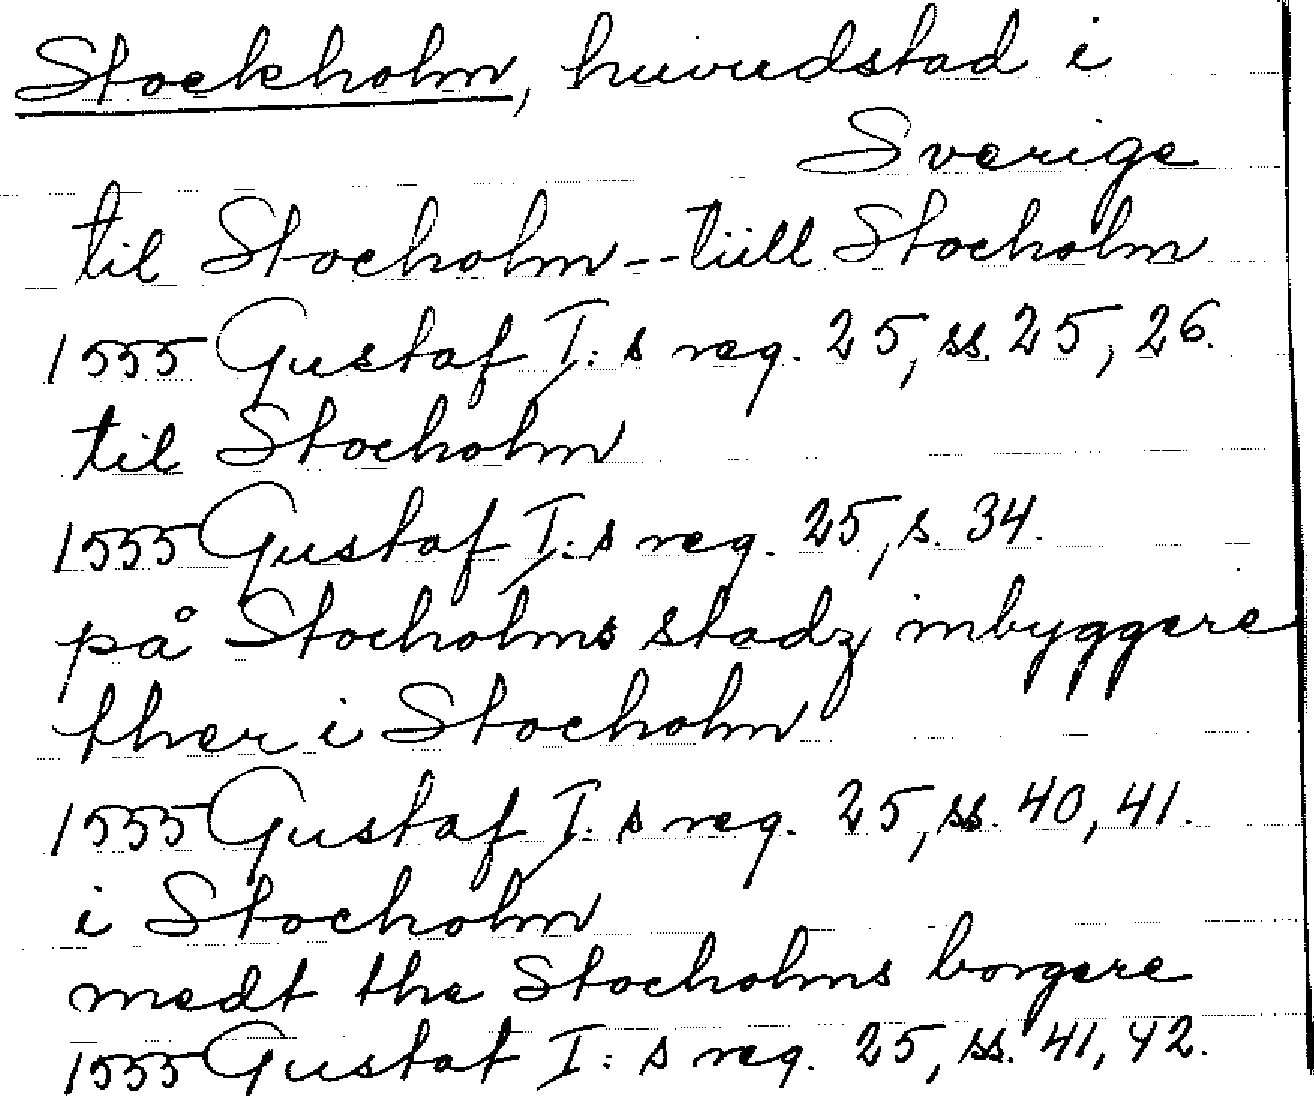 Stockholm, huvudstad i
Sverige
til Stocholm -- tüll Stocholm
1555 Gustaf I:s reg. 25, ss. 25, 26.
til Stocholm
1555 Gustaf I:s reg. 25, s. 34.
på Stocholms stadz inbyggere
ther i Stocholm
1555 Gustaf I:s reg. 25, ss. 40, 41.
i Stocholm
medt the Stocholms borgere
1555 Gustaf I:s reg. 25, ss. 41, 42.